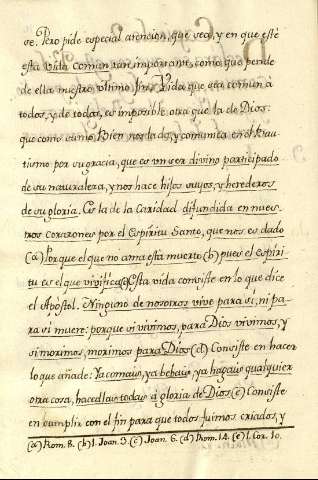 se. Pero pide especial atencion, que sea, y en que esté
esta vida comun tan importante, como que pende
de ella nuestro vltimo fin. Vida que sea comun à
todos, y de todos, es imposible otra que la de Dios:
que como sumo Bien nos la dà, y comunica en el Bau
tismo por su gracia, que es vn ser divino participado
de su naturaleza, y nos hace hijos suyos, y herederos
de su gloria. Es la de la Caridad difundida en nues
tros corazones por el Espiritu Santo, que nos es dado
(a) Porque el que no ama esta muerto (b) pues el espiri
tu es el que vivifica (c) Esta vida consiste en lo que dice
el Apostol. Ninguno de nosotros vive para sì, ni pa
ra sì muere: porque si vivimos, para Dios vivimos, y
si morimos, morimos para Dios (d) Consiste en hacer
lo que añade: Ya comais, ya bebais, ya hagais qualquier
otra cosa, hacedlas todas à gloria de Dios (e) Consiste
en cumplir con el fin para que todos fuimos criados, y
(a) Rom. 8. (b) I. Joan. 3. (c) Joan. 6. (d) Rom. 14. (e) I. Cor. 10.